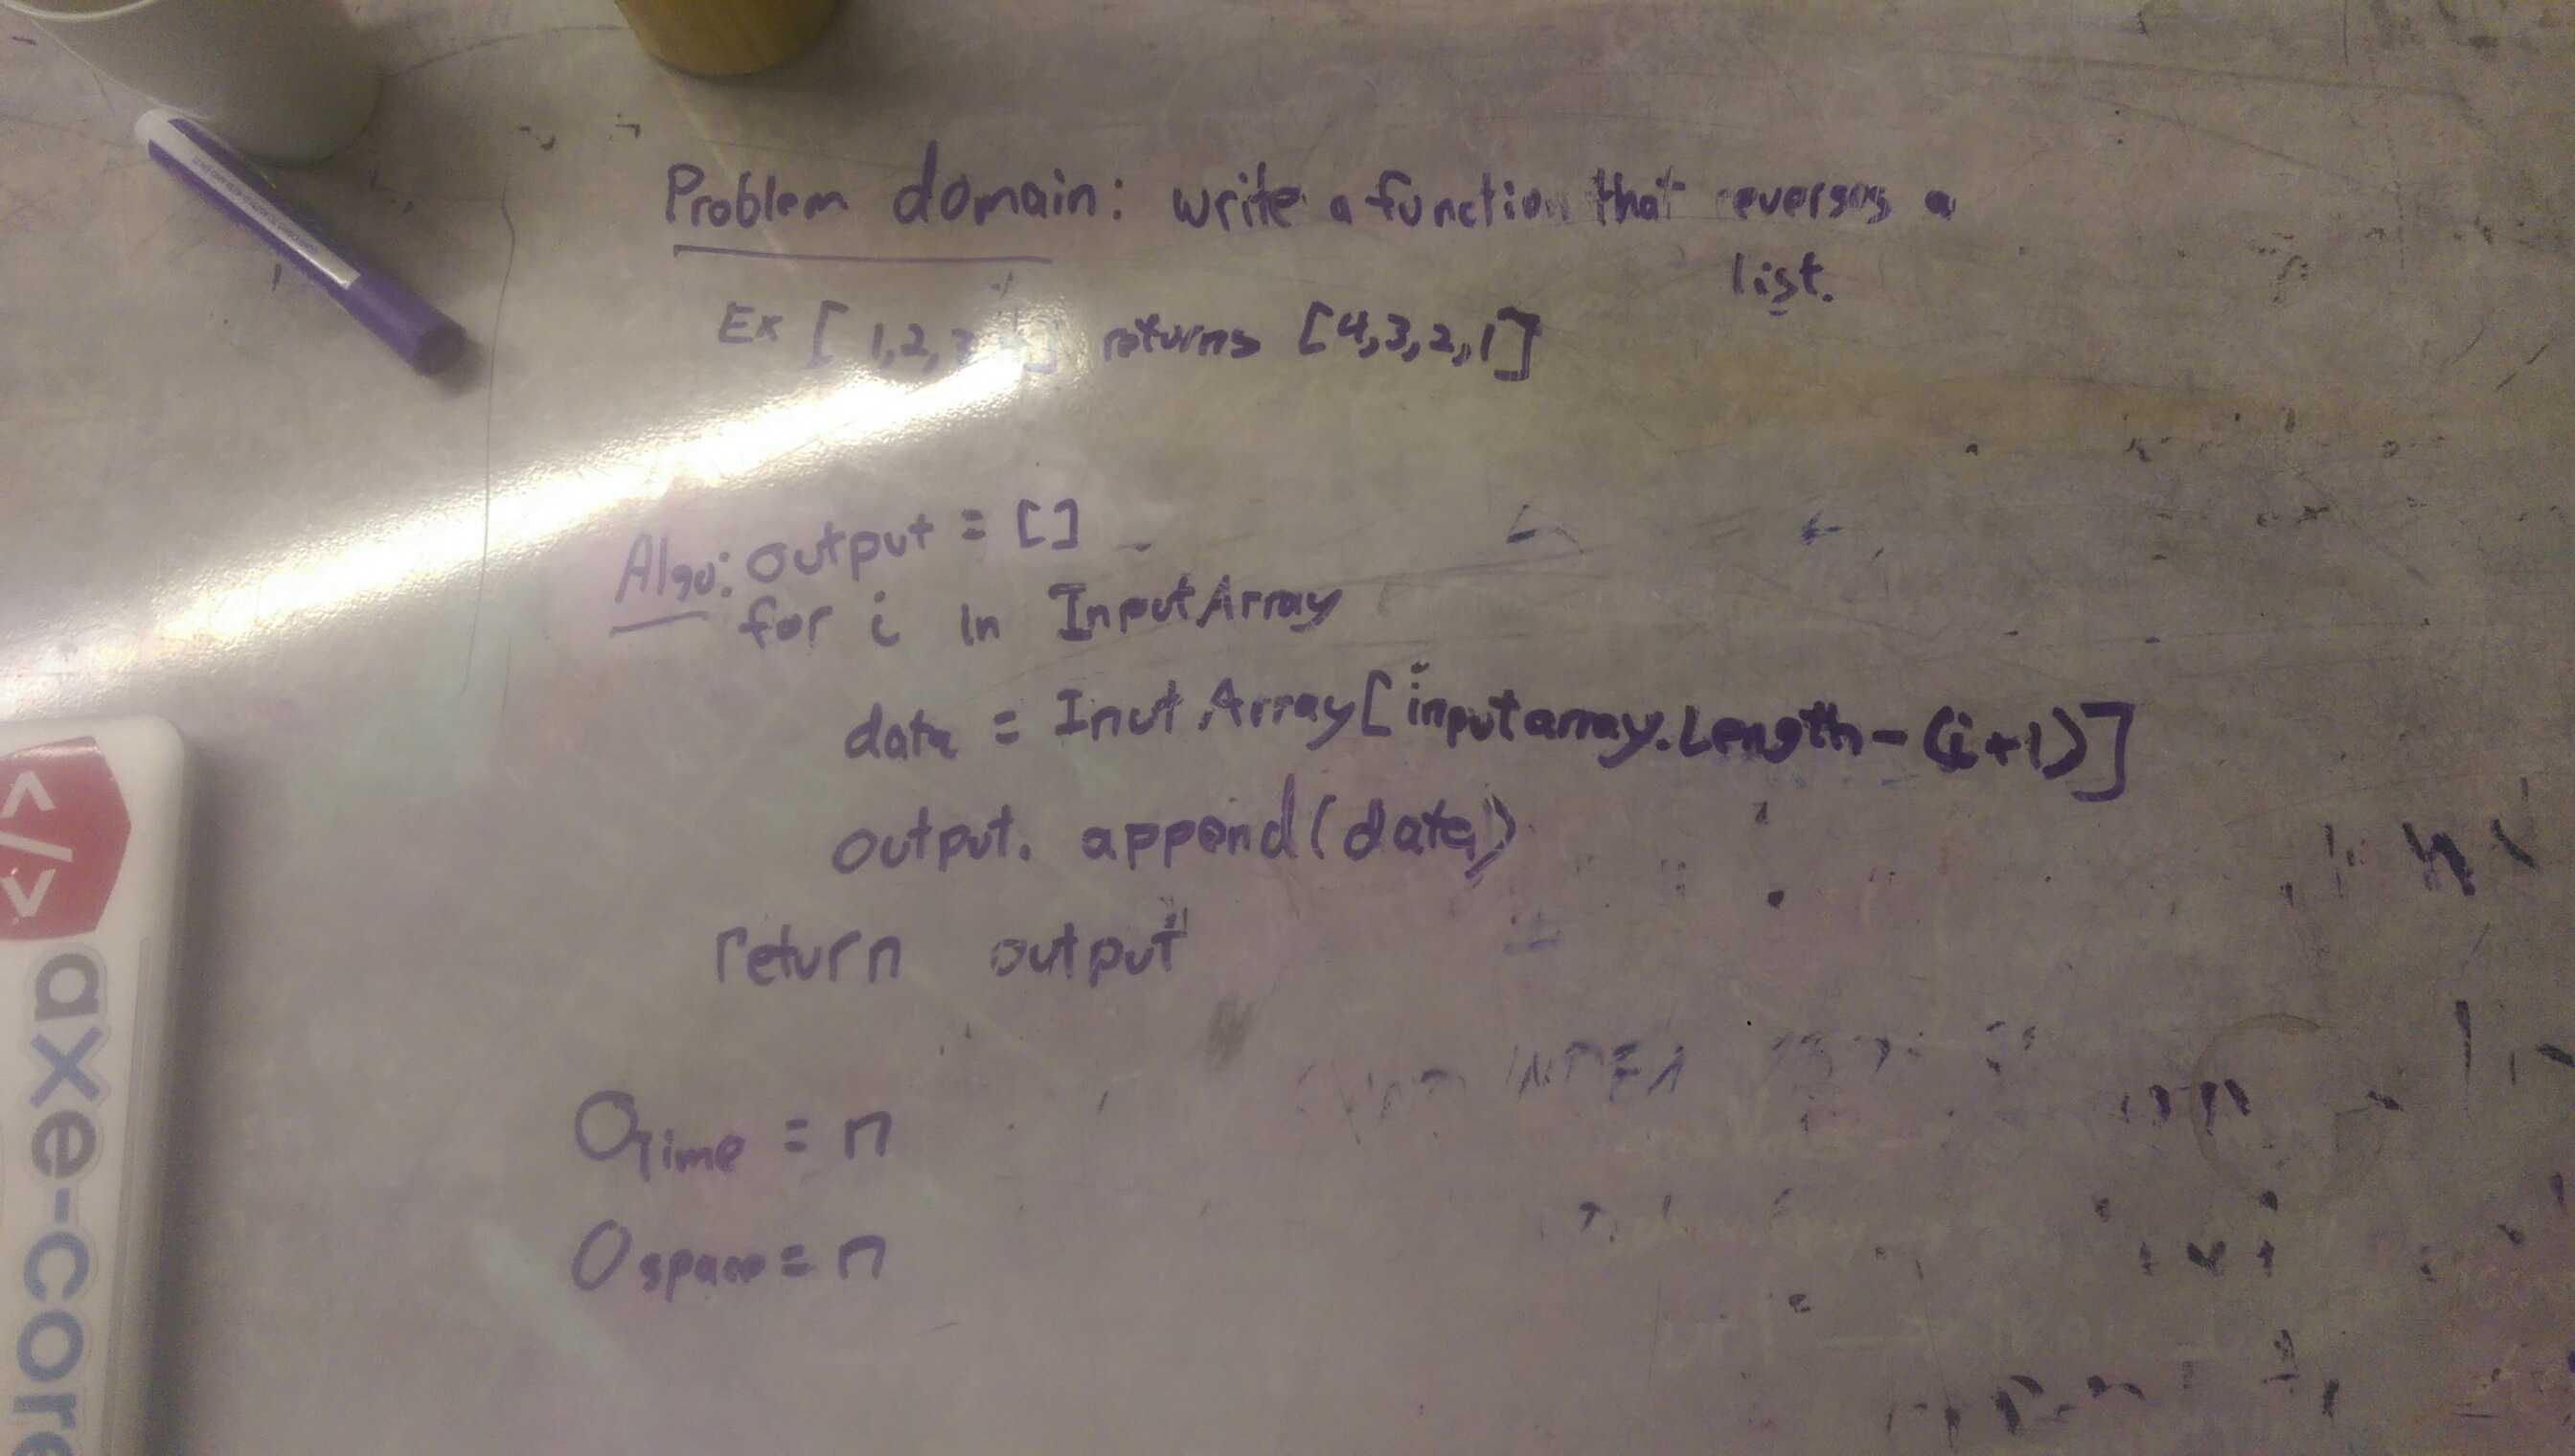 Problem domain: write a function that reverses a
list.
Ex [1,2,3,4] returns [4,3,2,1]
Algo: output = []
for i in InputArray
data = InutArray[inputarray.Length-(i+1)]
output.append(data)
return output
OTime = n
Ospace = n
</> axe-core